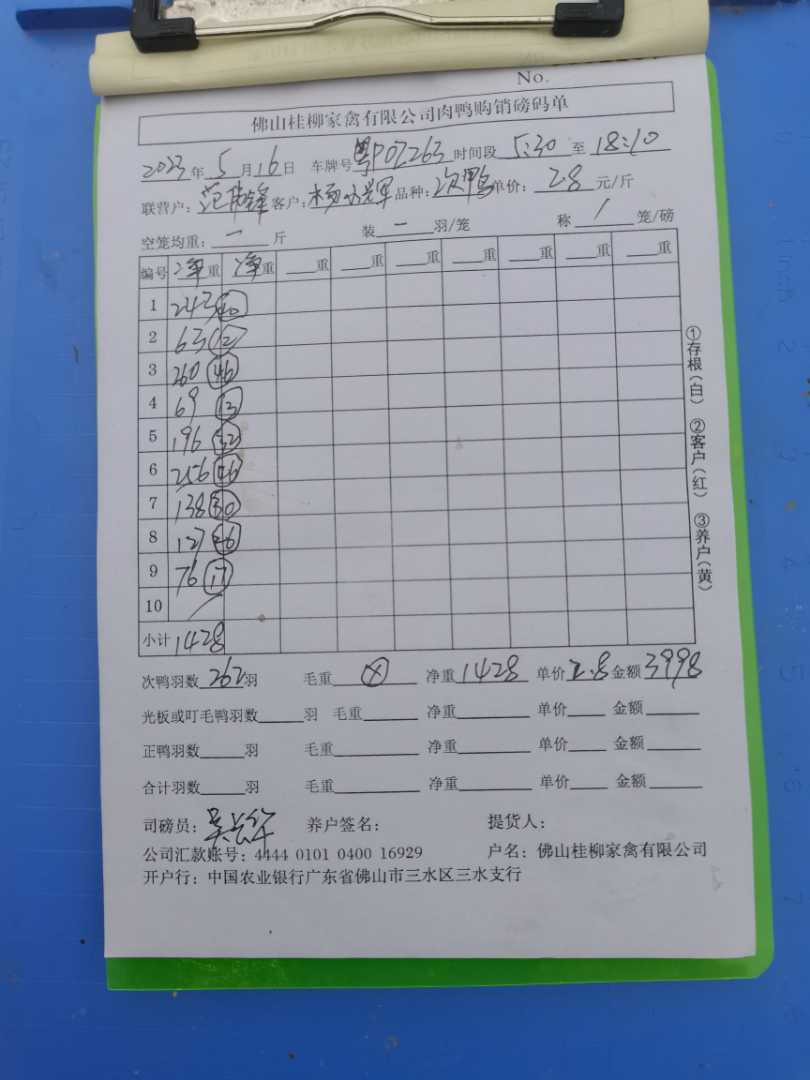 No.
佛山桂柳家禽有限公司肉鸭购销磅码单
2023年5月16日 车牌号粤P07263时间段5:30至18:10
联营户: 范 锋 客户: 杨 辉 品种: 次鸭 单价: 2.8 元/斤
空笼均重: 一 斤 装 一 羽/笼 称 / 笼/磅
编号 净重 净重 重 重 重 重 重 重 重
1 243 40
2 63 12
3 260 46
4 69 13
5 196 32
6 256 46
7 138 30
8 127 26
9 76 17
10 /
小计 1428
次鸭羽数262羽 毛重 ⊗ 净重1428 单价2.8金额3998
光板或叮毛鸭羽数 羽 毛重 净重 单价 金额
正鸭羽数 羽 毛重 净重 单价 金额
合计羽数 羽 毛重 净重 单价 金额
司磅员: 吴 华 养户签名: 提货人:
公司汇款账号: 4444 0101 0400 16929 户名: 佛山桂柳家禽有限公司
开户行: 中国农业银行广东省佛山市三水区三水支行
①存根(白) ②客户(红) ③养户(黄)